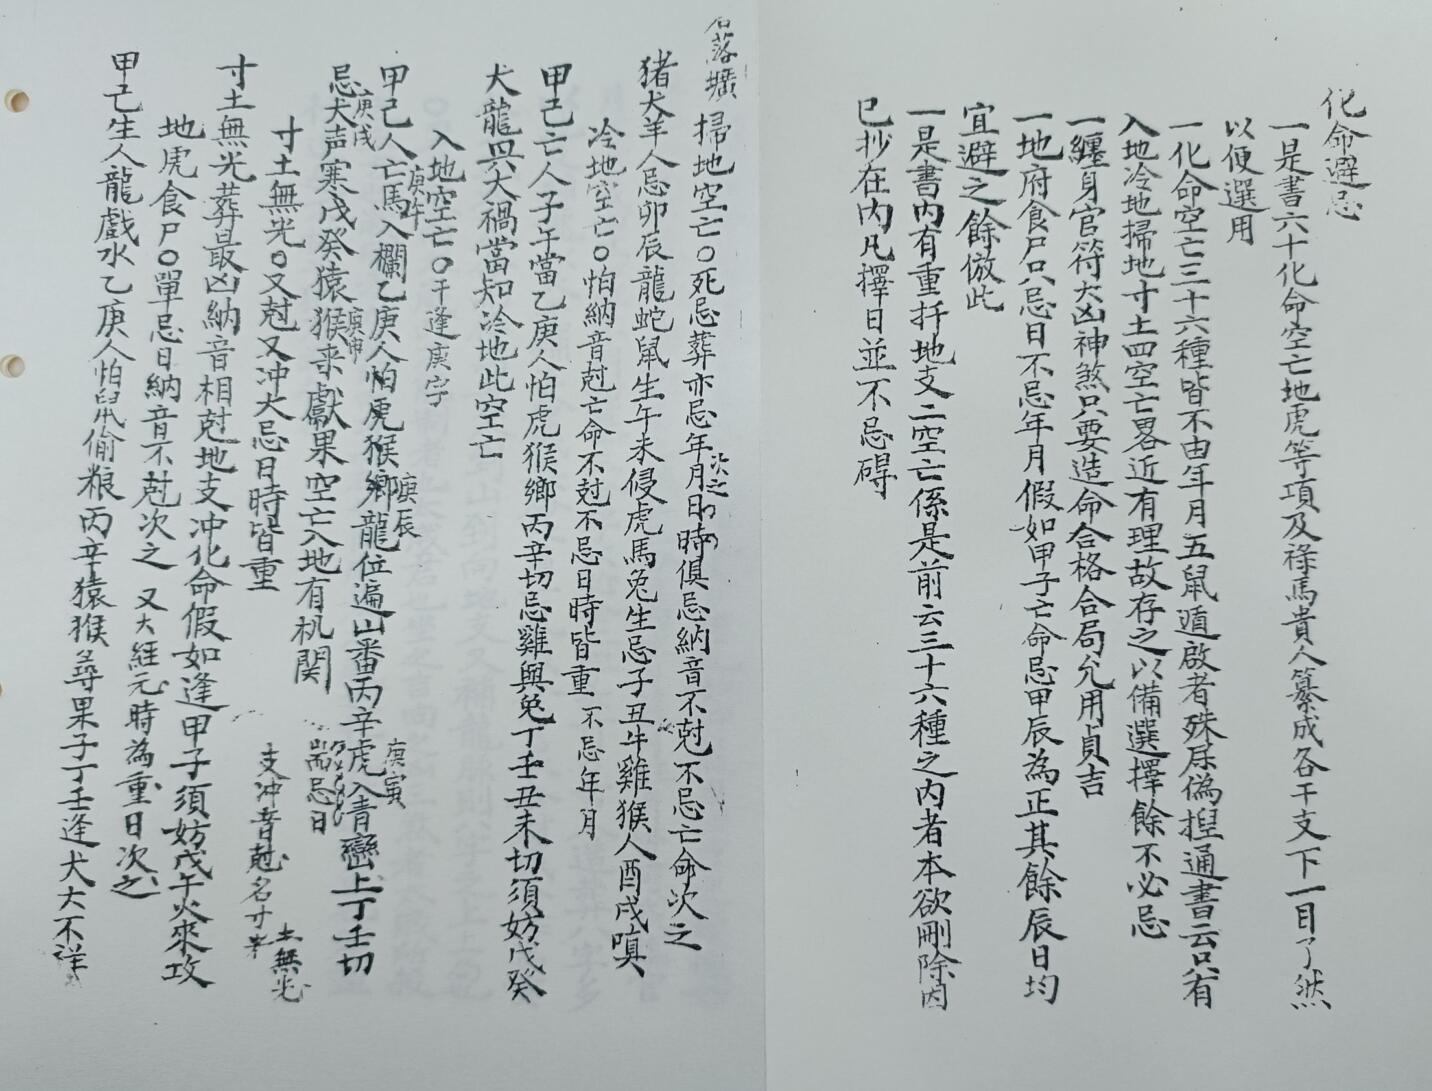 化命避忌
一是書六十化命空亡地虎等項及祿馬貴人纂成各干支下一目了然
以便選用
一化命空亡三十六種皆不由年月五鼠遁啟者殊屬偽捏通書云只有
入地冷地掃地寸土四空亡畧近有理故存之以備選擇餘不必忌
一纏身官符大凶神煞只要造命合格合局允用貞吉
一地府食尸只忌日不忌年月假如甲子亡命忌甲辰為正其餘辰日均
宜避之餘倣此
一是書內有重扦地支二空亡係是前云三十六種之內者本欲刪除因
已抄在內凡擇日並不忌碍
名落壙
掃地空亡○死忌葬亦忌年月日時俱忌納音不尅不忌亡命次之
次之
猪犬羊人忌卯辰龍蛇鼠生午未侵虎馬兔生忌子丑牛雞猴人酉戌嗔
冷地空亡○怕納音尅亡命不尅不忌日時皆重不忌年月
甲己亡人子午當乙庚人怕虎猴鄉丙辛切忌雞與兔丁壬丑未切須妨戊癸
犬龍與大禍當知冷地此空亡
入地空亡○干逢庚字
甲己人亡馬入欄乙庚人怕虎猴鄉龍位遍山番丙辛虎入青巒上丁壬切
庚午
庚辰
庚寅
忌犬声寒戊癸猿猴来獻果空亡入地有机関
庚戌
庚申
忌日
寸土無光○又尅又冲大忌日時皆重
支冲音尅名寸
土無光
寸土無光葬最凶納音相尅地支冲化命假如逢甲子須妨戊午火來攻
地虎食尸○單忌日納音不尅次之又大經元時為重日次之
甲己生人龍戲水乙庚人怕鼠偷粮丙辛猿猴尋果子丁壬逢犬大不祥